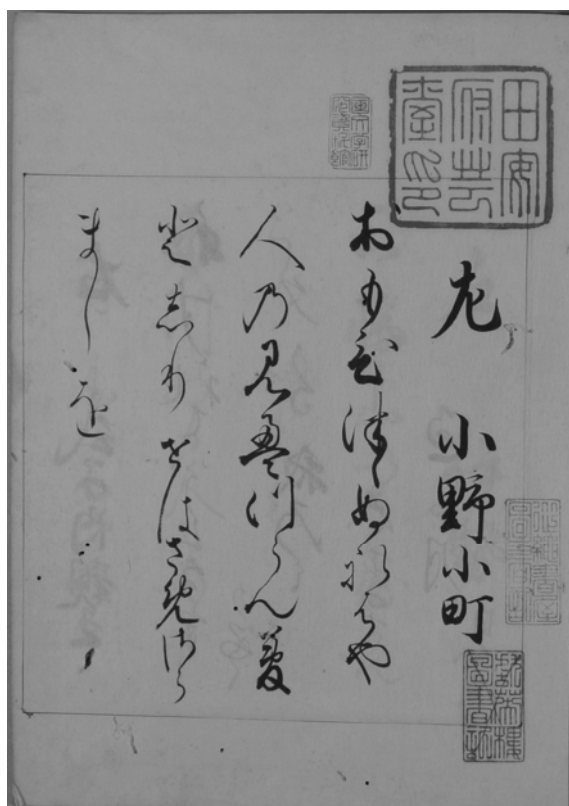 田安
府芸
臺印
左　小野小町
おもひつゝぬれはや
人の見えつらん夢
としりせはさめさら
ましを
獻英樓
圖書記